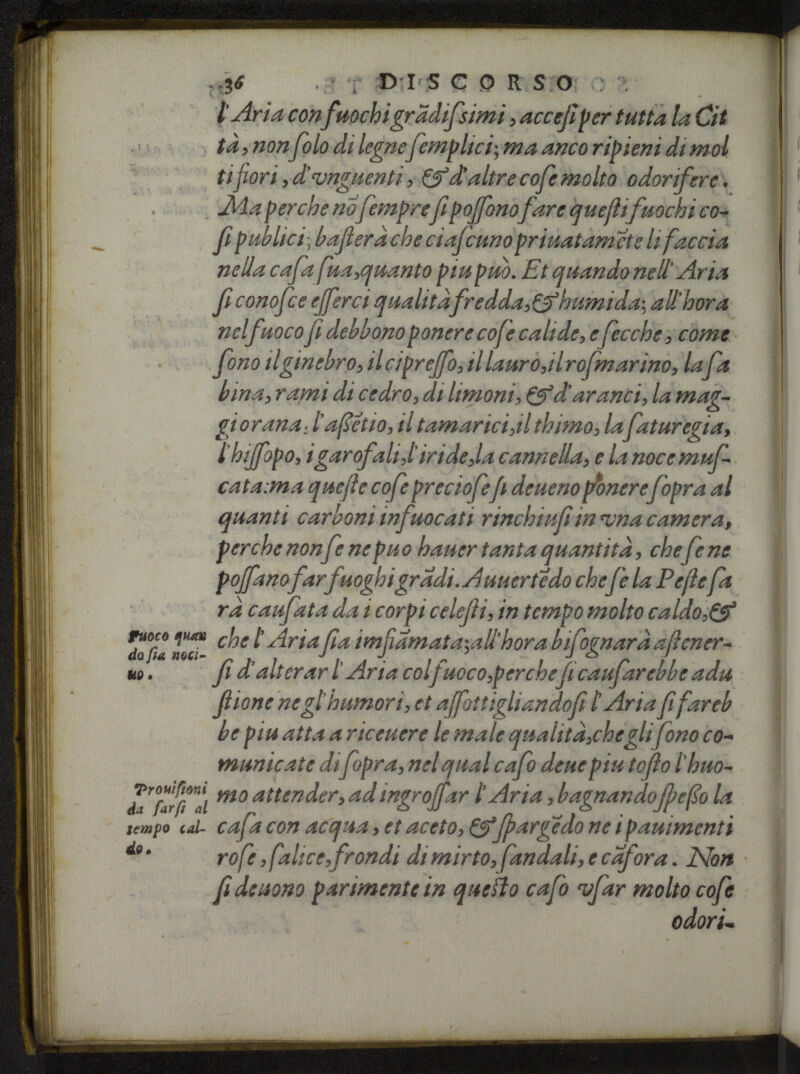 36 DISCORSO
l'Aria con fuochi grãdiſsimi, acceſi per tutta la Cit
tà, non ſolo di legne ſemplici; ma anco ripieni di mol
ti fiori, d'vnguenti, & d'altre coſe molto odorifere.
Ma perche nõ ſempre ſi poſſono fare queſti fuochi co-
ſi publici; baſterà che ciaſcuno priuatamẽte li faccia
nella caſa ſua, quanto piu può. Et quando nell' Aria
ſi conoſce eſſerci qualità fredda, & humida; all'hora
nel fuoco ſi debbono ponere coſe calide, e ſecche, come
ſono il ginebro, il cipreſſo, il lauro, il roſmarino, la ſa
bina, rami di cedro, di limoni, & d'aranci, la mag-
giorana; l'aßẽtio, il tamarici, il thimo, la ſaturegia,
l'hiſſopo, i garofali, l'iride, la cannella, e la noce muſ-
cata: ma queſte coſe precioſe ſi deueno ponere ſopra al
quanti carboni infuocati rinchiuſi in vna camera,
perche non ſe ne puo hauer tanta quantità, che ſe ne
poſſano far fuoghi grãdi. Auuertẽdo che ſe la Peſte ſa
rà cauſata da i corpi celeſti, in tempo molto caldo, &
che l'Aria ſia imfiãmata; all'hora biſognarà aſtener-
ſi d'alterar l'Aria col fuoco, perche ſi cauſarebbe adu
ſtione negl'humori, et aſſottigliandoſi l'Aria ſi fareb
be piu atta a riceuere le male qualità, che gli ſono co-
municate di ſopra, nel qual caſo deue piu toſto l'huo-
mo attender, ad ingroſſar l'Aria, bagnando ſpeßo la
caſa con acqua, et aceto, & ſpargẽdo ne i pauimenti
roſe, ſalice, frondi di mirto, ſandali, e cãfora. Non
ſi deuono parimente in queſto caſo vſar molto coſe
odori-
Fuoco quan
do ſia noci-
uo.
Prouiſioni
da farſi al
tempo cal-
do.